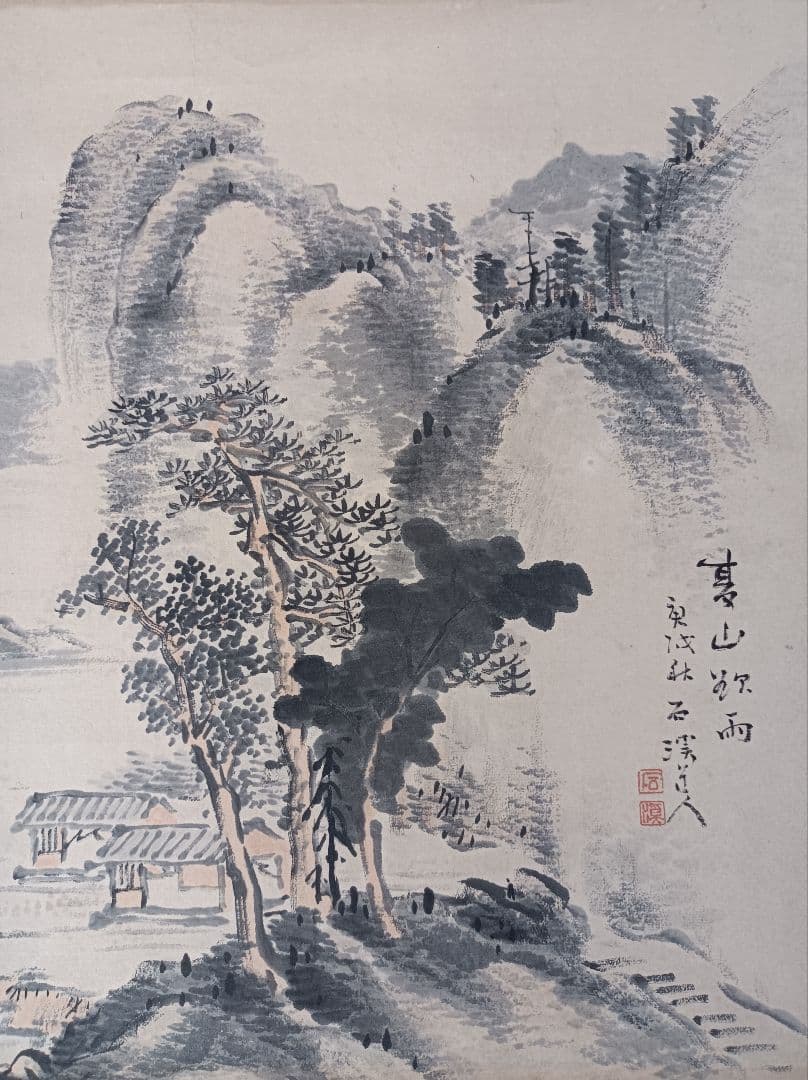 夏山欲雨
庚戌秋石溪道人
石
溪